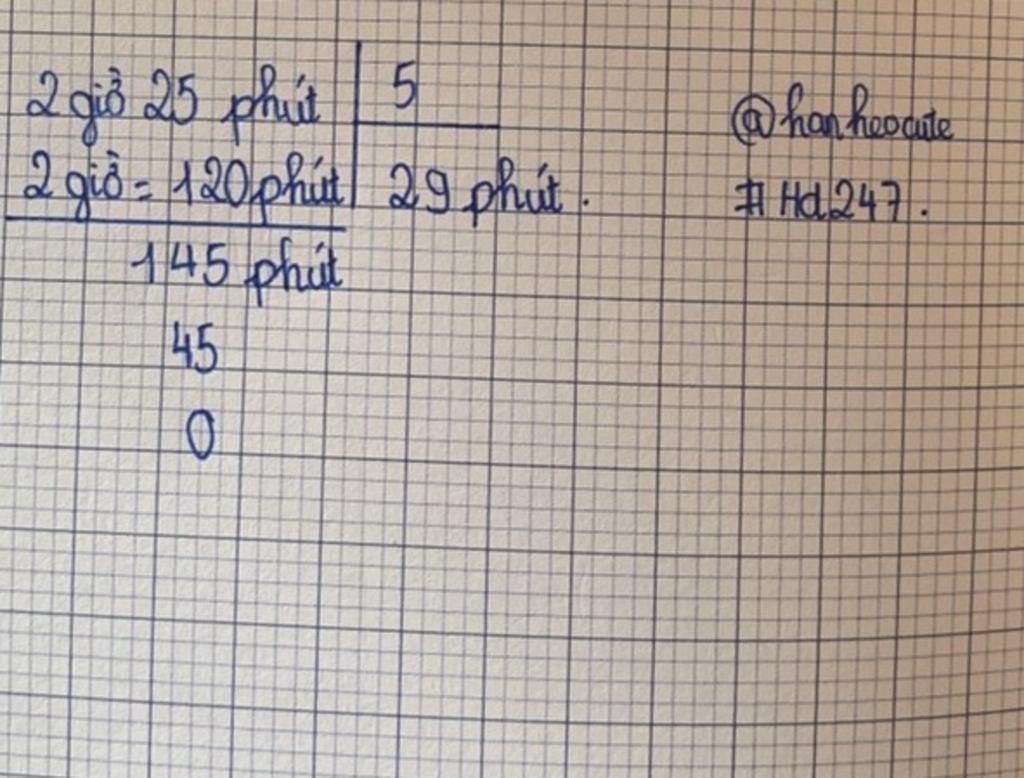 2 giờ 25 phút | 5
2 giờ = 120 phút | 29 phút.
145 phút
45
0
@hanheocute
#Hd247.